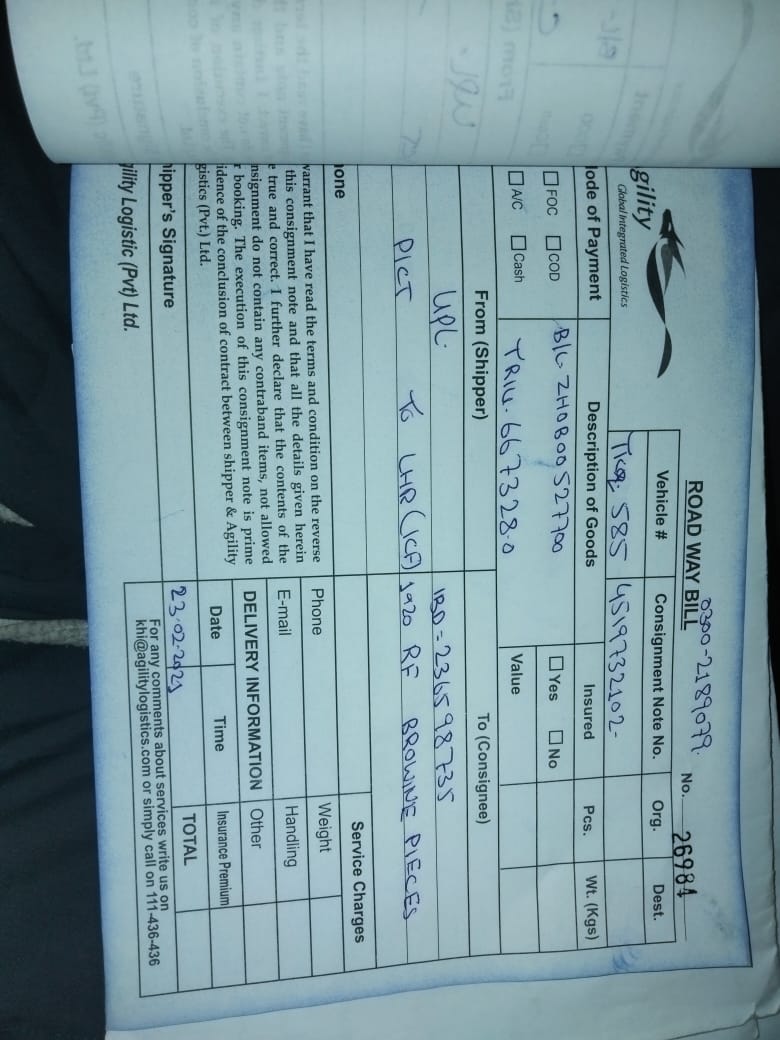 0300-2189079.
ROAD WAY BILL
No. 26984
gility
Global Integrated Logistics
Vehicle #
Consignment Note No.
Org.
Dest.
585
4519732102-
ode of Payment
Description of Goods
Insured
Pcs.
Wt. (Kgs)
FOC
COD
B/L ZHOB00527700
Yes
No
A/C
Cash
TRIU. 667328.0
Value
From (Shipper)
To (Consignee)
UPL.
IBD = 236598735
PICT TO LHR (ICF)
1920 RF BROWINE PIECES
Service Charges
one
Phone
Weight
varrant that I have read the terms and condition on the reverse
this consignment note and that all the details given herein
e true and correct. I further declare that the contents of the
nsignment do not contain any contraband items, not allowed
r booking. The execution of this consignment note is prime
idence of the conclusion of contract between shipper & Agility
gistics (Pvt.) Ltd.
E-mail
Handling
DELIVERY INFORMATION
Other
Date
Time
Insurance Premium
23-02-2021
TOTAL
hipper's Signature
For any comments about services write us on
khi@agilitylogistics.com or simply call on 111-436-436
gility Logistic (Pvt) Ltd.